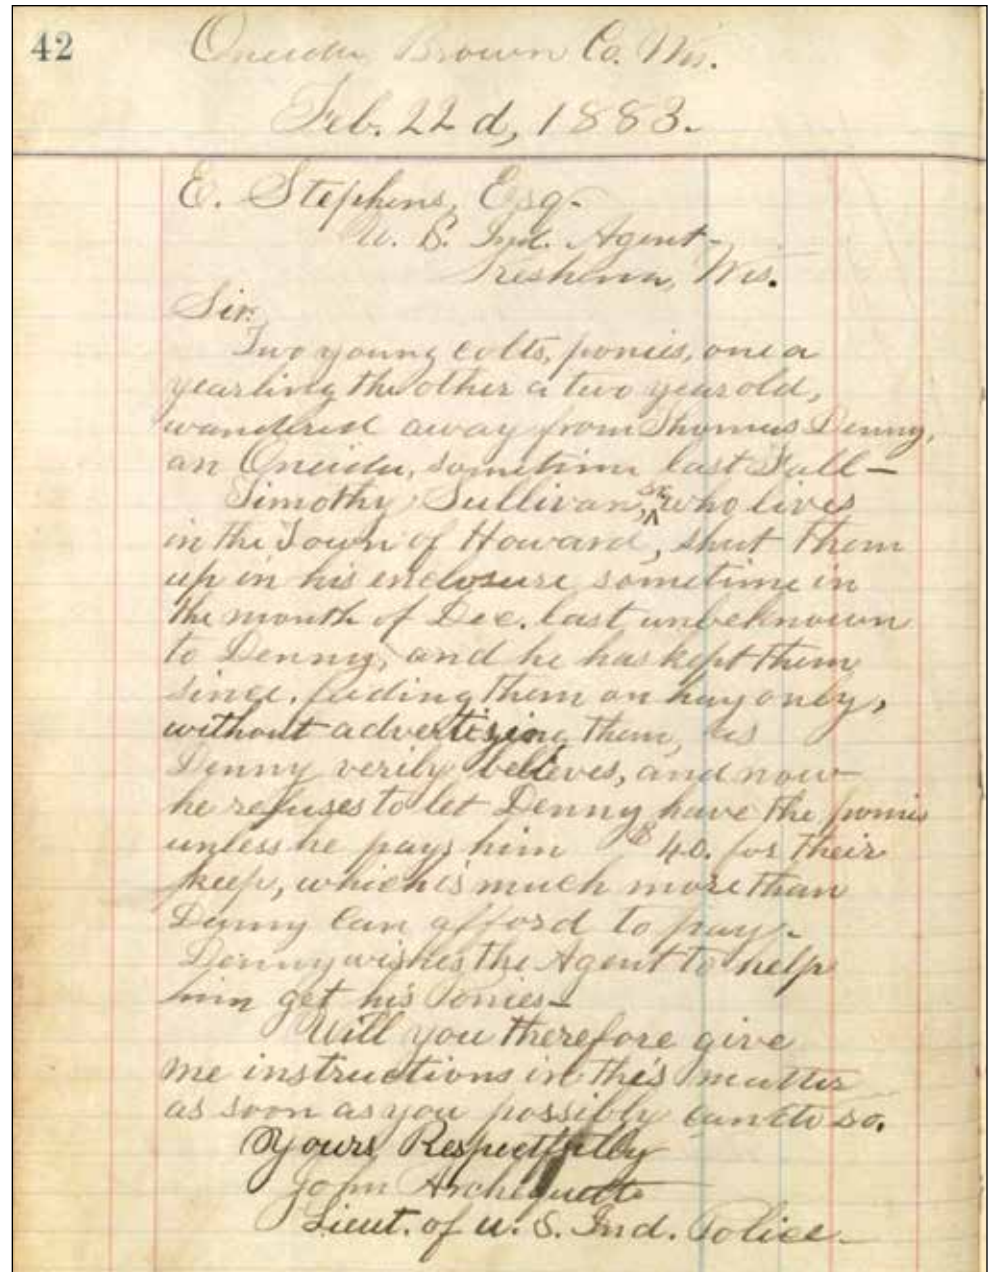 42
Oneida Brown Co. Wis.
Feb. 22d, 1883.
E. Stephens, Esq-
U. S. Ind. Agent-
Keshena, Wis.
Sir.
Two young colts, ponies, one a
yearling the other a two year old,
wandered away from Thomas Denny,
an Oneida, sometime last Fall-
Timothy Sullivan, Sr. who lives
in the Town of Howard, shut them
up in his enclosure sometime in
the month of Dec. last unbeknown
to Denny, and he has kept them
since, feeding them on hay only,
without advertising them, as
Denny verily believes, and now
he refuses to let Denny have the ponies
unless he pays him $40. for their
keep, which is much more than
Denny can afford to pay-
Denny wishes the Agent to help
him get his Ponies-
Will you therefore give
me instructions in this matter
as soon as you possibly can do so.
Yours Respectfully
John Archiquette
Lieut. of U. S. Ind. Police-